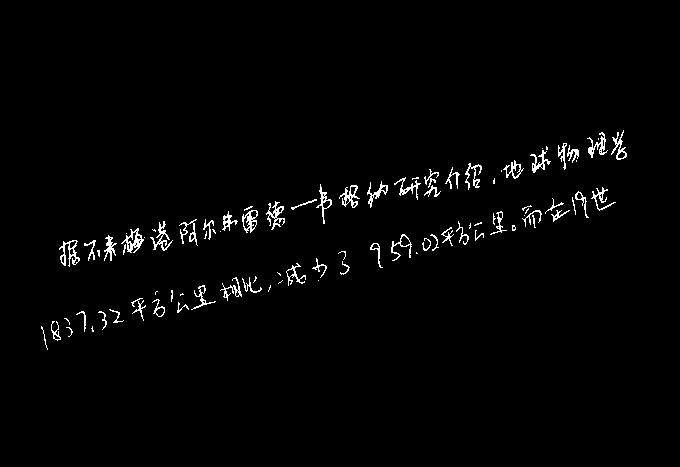 据不来梅港阿尔弗雷德一韦格纳研究介绍，地球物理学
1837.32平方公里相比，减少了959.02平方公里。而在19世